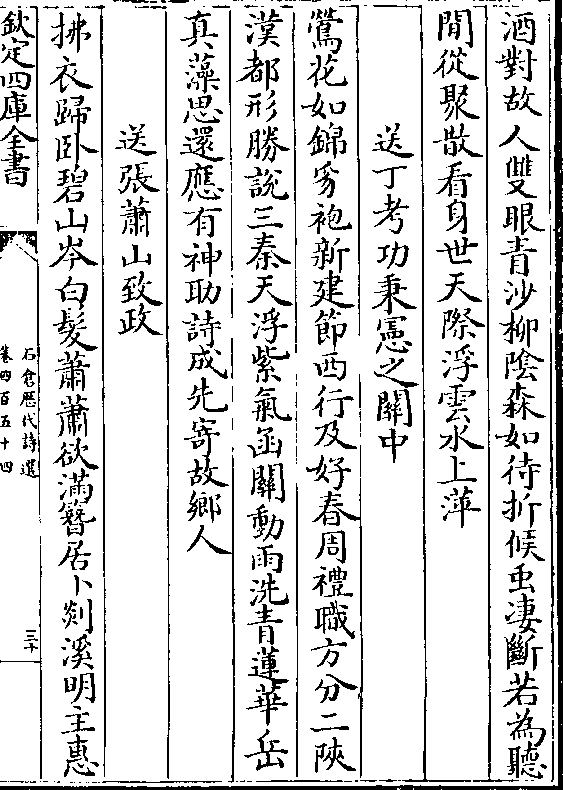 酒對故人雙眼青沙柳陰森如待折候虫凄斷若為聽
閒從聚散看身世天際浮雲水上萍
送丁考功秉憲之關中
鶯花如錦豸袍新建節西行及好春周禮職方分二陜
漢都形勝說三秦天浮紫氣函關動雨洗青蓮華岳
真藻思還應有神助詩成先寄故鄉人
送張蕭山致政
拂衣歸卧碧山岑白髮蕭蕭欲滿簪居卜剡溪明主惠
欽定四庫全書
石倉歷代詩選
卷四百五十四
三十